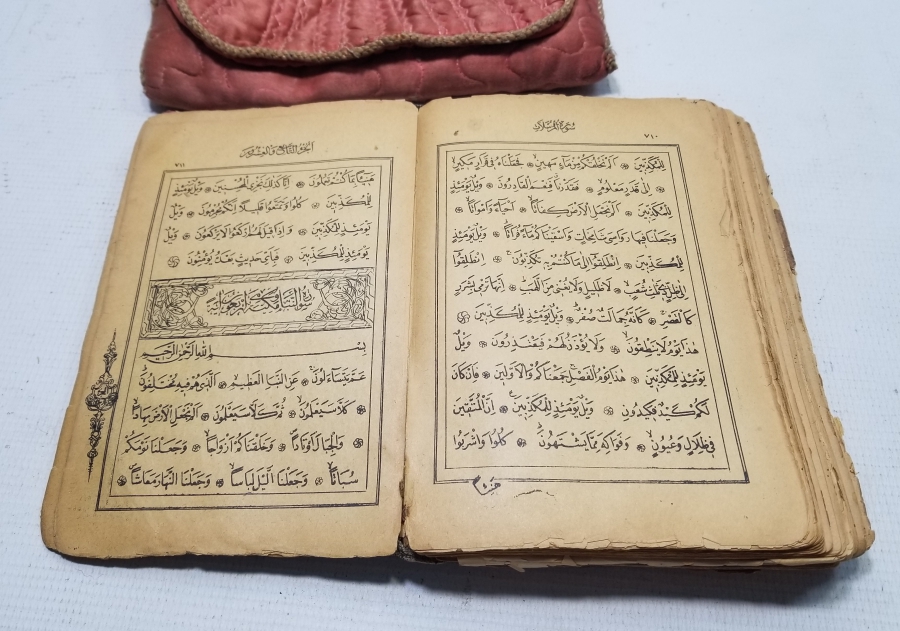 سُورَةُ الْمُرْسَلَاتِ ٧١٠
لِلْمُكَذِّبِينَ ۞ اَلَمْ نَخْلُقْكُمْ مِنْ مَاءٍ مَهِينٍ ۞ فَجَعَلْنَاهُ فِي قَرَارٍ مَكِينٍ
اِلٰى قَدَرٍ مَعْلُومٍ ۞ فَقَدَرْنَا فَنِعْمَ الْقَادِرُونَ ۞ وَيْلٌ يَوْمَئِذٍ
لِلْمُكَذِّبِينَ ۞ اَلَمْ نَجْعَلِ الْاَرْضَ كِفَاتًا ۞ اَحْيَاءً وَاَمْوَاتًا
وَجَعَلْنَا فِيهَا رَوَاسِيَ شَامِخَاتٍ وَاَسْقَيْنَاكُمْ مَاءً فُرَاتًا ۞ وَيْلٌ يَوْمَئِذٍ
لِلْمُكَذِّبِينَ ۞ اِنْطَلِقُوا اِلٰى مَا كُنْتُمْ بِهِ تُكَذِّبُونَ ۞ اِنْطَلِقُوا
اِلٰى ظِلٍّ ذِي ثَلٰثِ شُعَبٍ ۞ لَا ظَلِيلٍ وَلَا يُغْنِي مِنَ اللَّهَبِ ۞ اِنَّهَا تَرْمِي بِشَرَرٍ
كَالْقَصْرِ ۞ كَاَنَّهُ جِمَالَتٌ صُفْرٌ ۞ وَيْلٌ يَوْمَئِذٍ لِلْمُكَذِّبِينَ ۞
هٰذَا يَوْمُ لَا يَنْطِقُونَ ۞ وَلَا يُؤْذَنُ لَهُمْ فَيَعْتَذِرُونَ ۞ وَيْلٌ
يَوْمَئِذٍ لِلْمُكَذِّبِينَ ۞ هٰذَا يَوْمُ الْفَصْلِ جَمَعْنَاكُمْ وَالْاَوَّلِينَ ۞ فَاِنْ كَانَ
لَكُمْ كَيْدٌ فَكِيدُونِ ۞ وَيْلٌ يَوْمَئِذٍ لِلْمُكَذِّبِينَ ۞ اِنَّ الْمُتَّقِينَ
فِي ظِلَالٍ وَعُيُونٍ ۞ وَفَوَاكِهَ مِمَّا يَشْتَهُونَ ۞ كُلُوا وَاشْرَبُوا
٧١١
هَنِيئًا بِمَا كُنْتُمْ تَعْمَلُونَ ۞ اِنَّا كَذٰلِكَ نَجْزِي الْمُحْسِنِينَ ۞ وَيْلٌ يَوْمَئِذٍ
لِلْمُكَذِّبِينَ ۞ كُلُوا وَتَمَتَّعُوا قَلِيلًا اِنَّكُمْ مُجْرِمُونَ ۞ وَيْلٌ
يَوْمَئِذٍ لِلْمُكَذِّبِينَ ۞ وَاِذَا قِيلَ لَهُمُ ارْكَعُوا لَا يَرْكَعُونَ ۞ وَيْلٌ
يَوْمَئِذٍ لِلْمُكَذِّبِينَ ۞ فَبِاَيِّ حَدِيثٍ بَعْدَهُ يُؤْمِنُونَ ۞
سُورَةُ النَّبَأِ مَكِّيَّةٌ وَهِيَ اَرْبَعُونَ اٰيَةً
بِسْمِ اللهِ الرَّحْمٰنِ الرَّحِيمِ
عَمَّ يَتَسَاءَلُونَ ۞ عَنِ النَّبَأِ الْعَظِيمِ ۞ اَلَّذِي هُمْ فِيهِ مُخْتَلِفُونَ
۞ كَلَّا سَيَعْلَمُونَ ۞ ثُمَّ كَلَّا سَيَعْلَمُونَ ۞ اَلَمْ نَجْعَلِ الْاَرْضَ مِهَادًا
۞ وَالْجِبَالَ اَوْتَادًا ۞ وَخَلَقْنَاكُمْ اَزْوَاجًا ۞ وَجَعَلْنَا نَوْمَكُمْ
سُبَاتًا ۞ وَجَعَلْنَا الَّيْلَ لِبَاسًا ۞ وَجَعَلْنَا النَّهَارَ مَعَاشًا